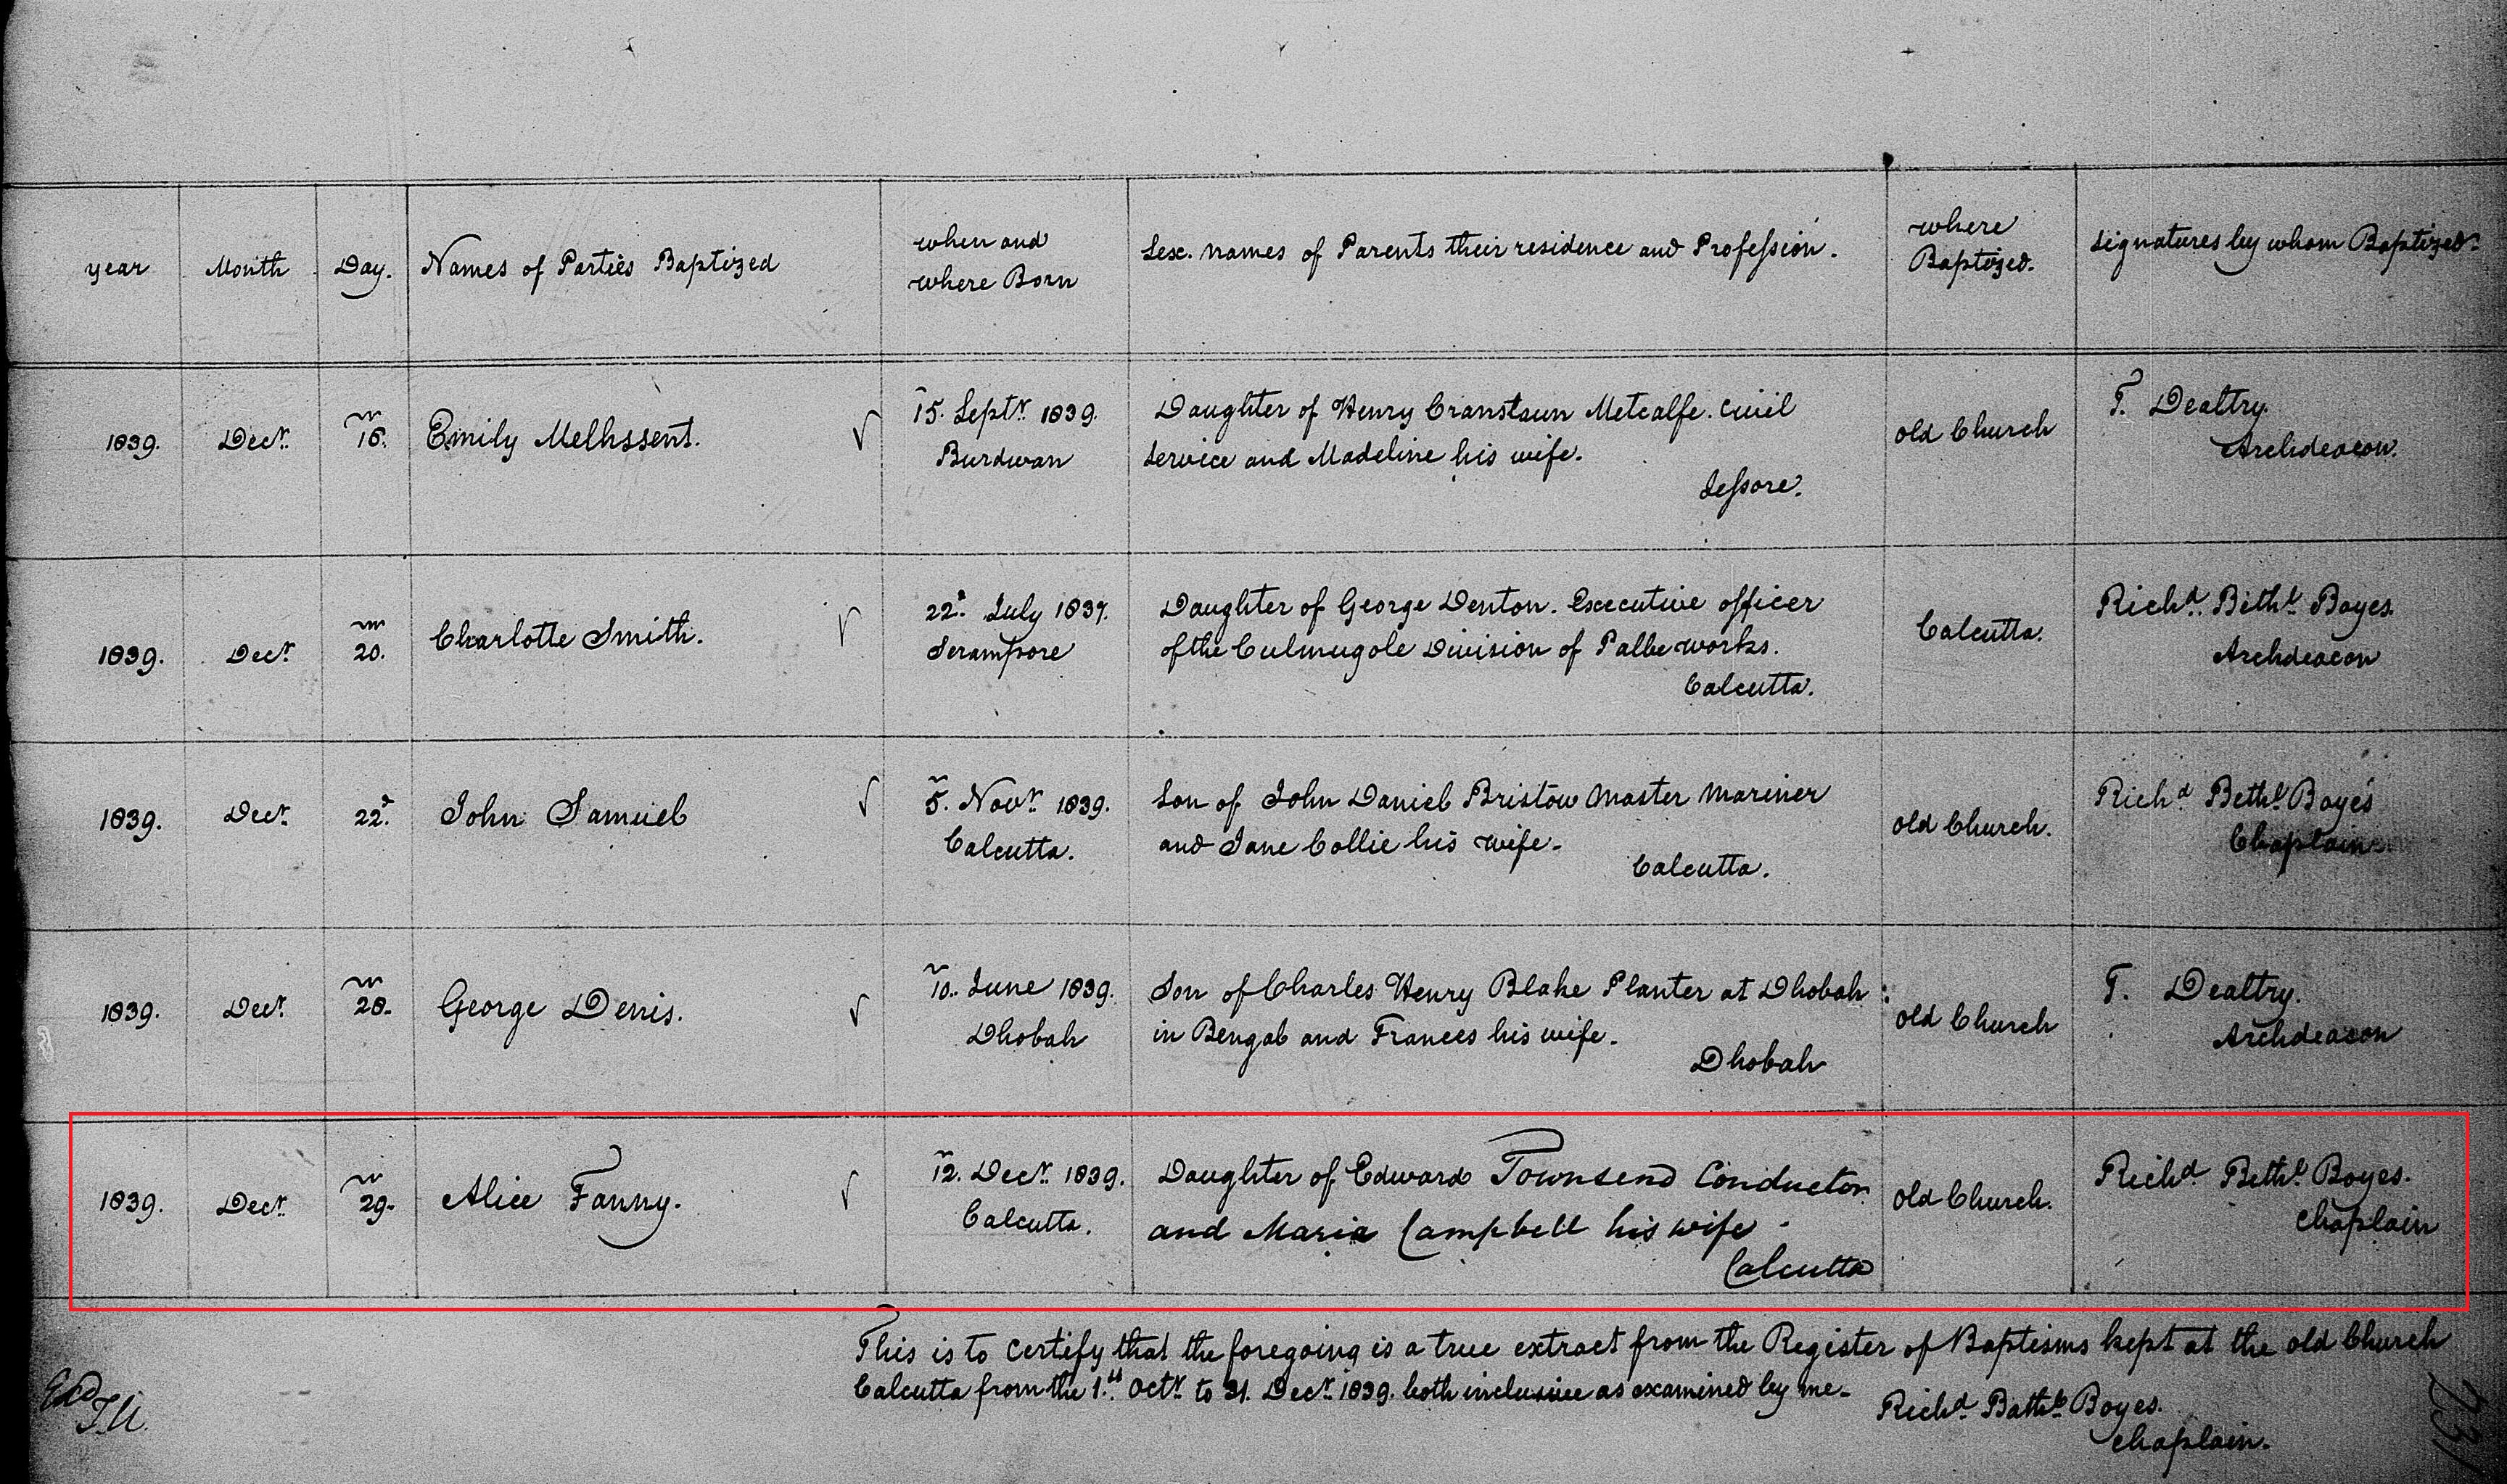 year
Month
Day.
Names of Parties Baptized
when and
where Born
Sex. names of Parents their residence and Profession.
where
Baptized.
Signatures by whom Baptized.
1839.
Decr.
16.
Emily Melhssent.
15. Septr. 1839.
Burdwan
Daughter of Henry Cranstaun Metcalfe. Civil
Service and Madeline his wife.
Jessore.
Old Church
T. Dealtry.
Archdeacon.
1839.
Decr.
20.
Charlotte Smith.
22d. July 1837.
Serampore
Daughter of George Denton. Executive officer
of the Culmugole Division of Palbe works.
Calcutta.
Calcutta.
Richd. Bethl. Boyes.
Archdeacon
1839.
Decr.
22d.
John Samuel
5. Novr. 1839.
Calcutta.
Son of John Daniel Bristow Master Mariner
and Jane Collie his wife.
Calcutta.
Old Church.
Richd. Bethl. Boyes
Chaplain
1839.
Decr.
28.
George Denis.
10. June 1839.
Dhobah
Son of Charles Henry Blake Planter at Dhobah
in Bengal and Frances his wife.
Dhobah
Old Church
T. Dealtry.
Archdeacon
1839.
Decr.
29.
Alice Fanny.
12. Decr. 1839.
Calcutta.
Daughter of Edward Townsend Conductor
and Maria Campbell his wife
Calcutta
Old Church.
Richd. Bethl. Boyes.
Chaplain
This is to certify that the foregoing is a true extract from the Register of Baptisms kept at the old Church
Calcutta from the 1st. Octr. to 31. Decr. 1839. both inclusive as examined by me.
Richd. Bathl. Boyes.
Chaplain.
231